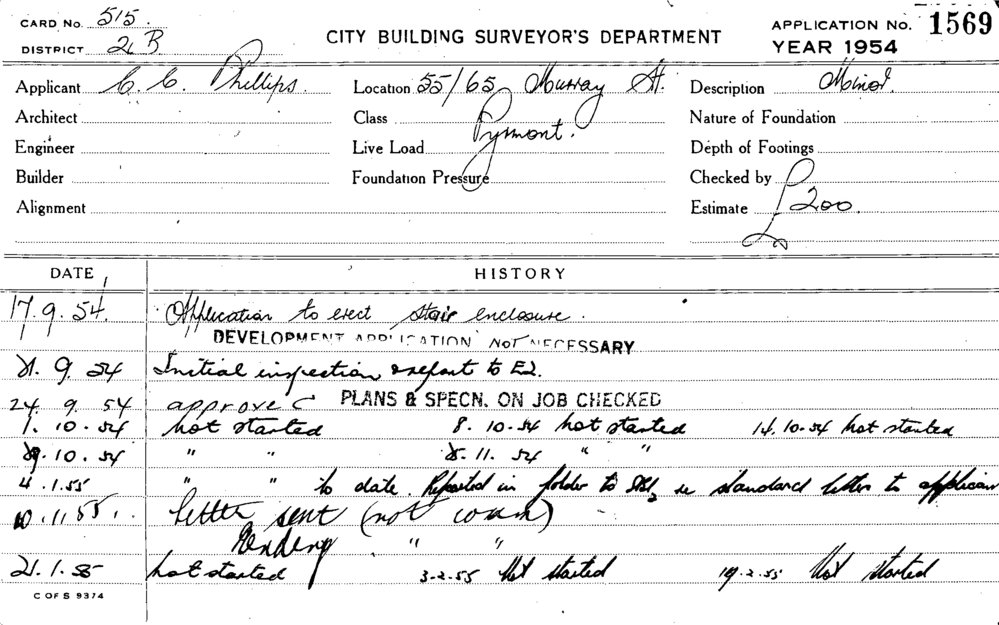 CARD No. 515. CITY BUILDING SURVEYOR'S DEPARTMENT APPLICATION No. 1569
DISTRICT 2B YEAR 1954
Applicant C. C. Phillips. Location 55/65 Murray St. Description Minor.
Architect Class Pyrmont. Nature of Foundation
Engineer Live Load Depth of Footings
Builder Foundation Pressure Checked by
Alignment Estimate £200.
DATE HISTORY
17.9.54. Application to erect stair enclosure.
DEVELOPMENT APPLICATION NOT NECESSARY
21.9.54 Initial inspection & report to
24.9.54 approve C PLANS & SPECN. ON JOB CHECKED
1.10.54 not started 8.10.54 not started 14.10.54 not started
29.10.54 " " 11.54 " "
4.1.55 " " to date. Reported in folder to re standard letter to applicant
letter sent (not comm)
Pending " "
21.1.55 not started 3.2.55 Not started 19.2.55 Not started
C OF S 9374